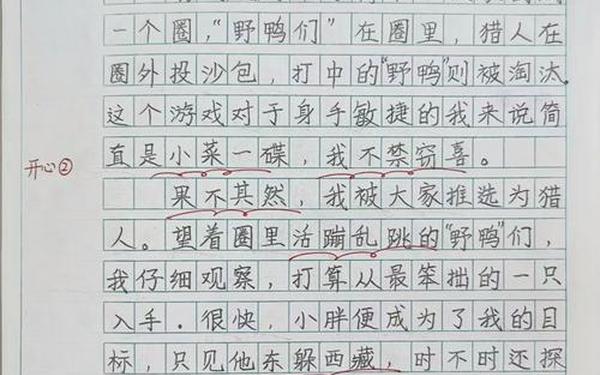 一个圈，“野鸭们”在圈里，猎人在
圈外投沙包，打中的“野鸭”则被淘汰。
这个游戏对于身手敏捷的我来说简
直是小菜一碟，我不禁窃喜。
开心②
果不其然，我被大家推选为猎
人。望着圈里活蹦乱跳的“野鸭”们，
我仔细观察，打算从最笨拙的一只
入手．很快，小胖便成为了我的目
标，只见他东躲西藏，时不时还探